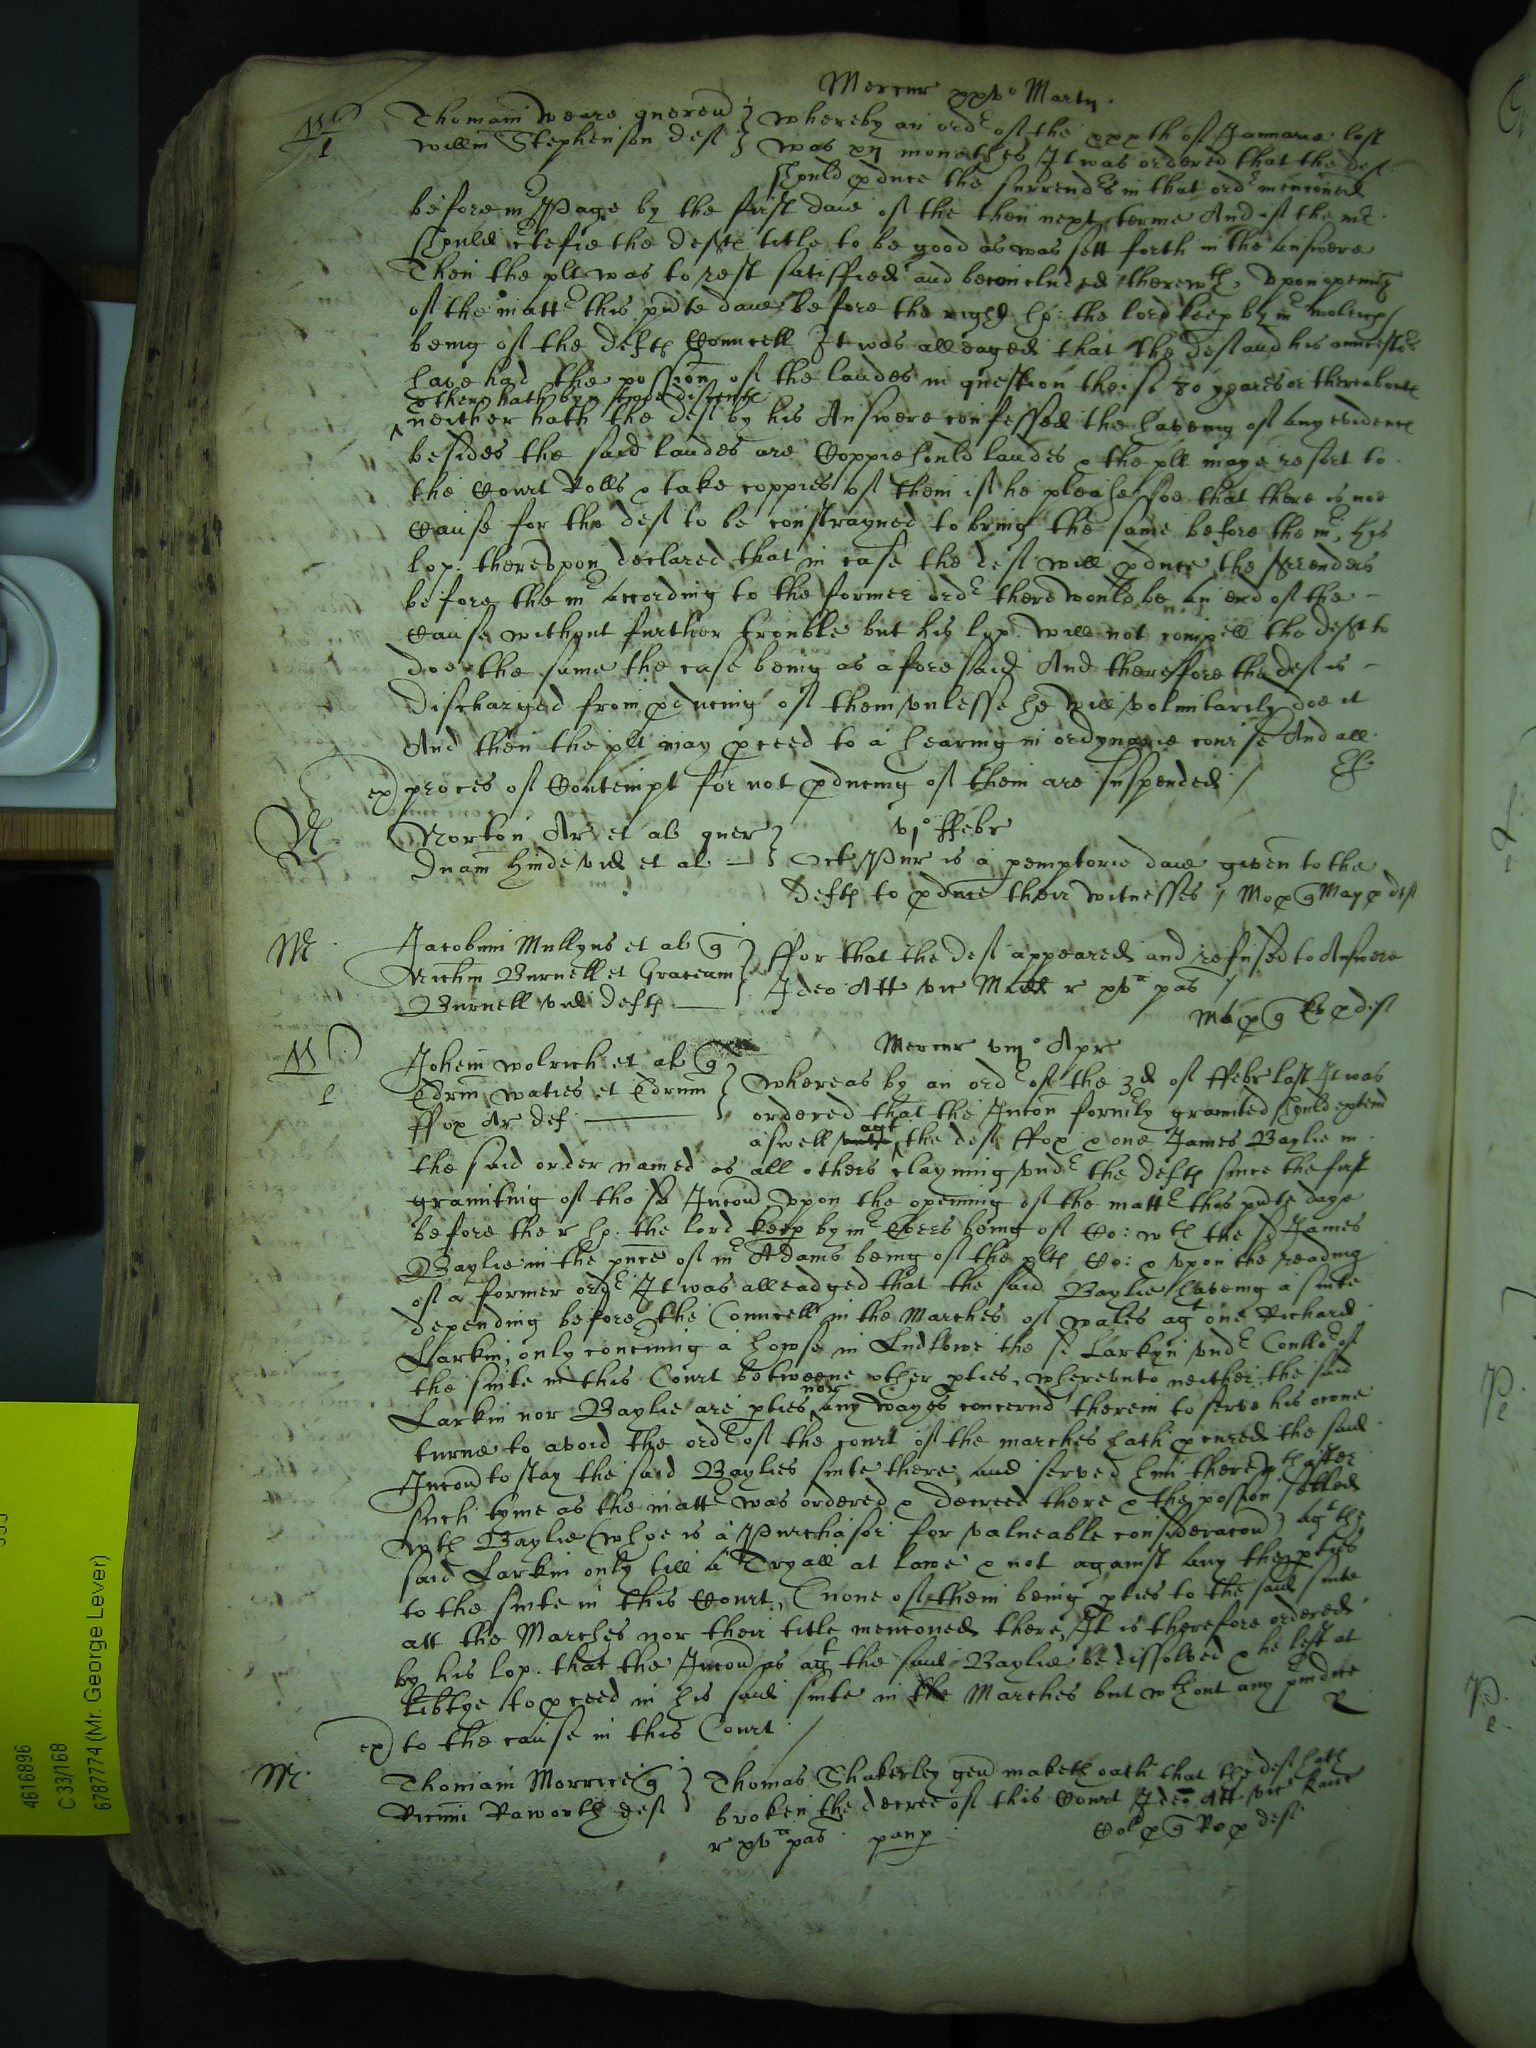 Mercur xxvo Martij
Thomam Weare quereu whereby an ordr of the xxxth of Januarie last
Willm Stephenson deft was xij monethes It was ordered that the deft
should pduce the surrendrs in that ordr menconed
before mr Page by the first daie of the then next terme And if the mr
should ctefie the defts title to be good as was sett forth in the Answere
Then the plt was to rest satisfied and be concluded therewth, Upon opening
of the mattr this pnte daie before the right ho: the lord keep by mr Wolrich
being of the defts Councell It was alleaged that the deft and his auncestrs
have had the possion of the landes in question theise 80 yeares or thereaboute
& there hath byn sondrie discente
neither hath the deft by his Answere confessed the haveing of any evidence
besides the said landes are Coppiehould landes & the plt maye resort to
the Court Rolls & take coppies of them if he please soe that there is noe
Cause for the deft to be constrayned to bring the same before the mr, his
lop. thereupon declared that in case the deft will pduce the surrenders
before the mr According to the former ordr there would be an end of the
Cause without further trouble but his lop. will not compell the deft to
doe the same the case being as aforesaid And therefore the deft is
discharged from pducing of them unlesse he will voluntarily doe it
And then the plt may pceed to a hearing in ordynarie course And all
ex) proces of Contempt for not pducing of them are suspended /
Norton Ar et al quer vjo ffebr
Annam Hinde vid et al Oct Pur is a pemptorie daie given to the
defts to pduce their witnesses / Mo p q May p def
Jacobum Mullyns et al q ffor that the deft appeared and refused to Answere
Richm Burnell et Graceam Ideo Att vic Midd r xva pas /
Burnell vid defts
Mercur viijo Apr
Johem Wolrich et al q
Edrum Waties et Edrum Whereas by an ordr of the 3d of ffebr last It was
ffox Ar def ordered that the Incon formrly graunted should extend
aswell agt the deft ffox & one James Baylie in
the said order named as all others clayming undr the defts since the first
graunting of the sd Incon Upon the opening of the mattr this pnte daye
before the r ho. the lord keep by mr Evers being of Co: wth the sd James
Baylie in the pnce of mr Adams being of the plts Co: & upon the reading
of a former ordr It was alleadged that the said Baylie haveing a suite
depending before the Councell in the Marches of Wales agt one Richard
Larkin, only concning a howse in Ludlowe the sd Larkyn undr Collor of
the suite in this Court betweene other pties, whereunto neither the said
Larkin nor Baylie are pties nor any wayes concernd therein to serve his owne
turne to avoid the ordr of the court of the marches hath pcured the said
Incon to stay the said Baylies suite there and served him therewth after
such tyme as the mattr was ordered & decreed there & the possion setled
wth Baylie (whoe is a Purchasor for valueable consideracon) agt the
said Larkin only till a Tryall at lawe & not against any the pties
to the suite in this Court, (none of them being pties to the said suite
att the Marches nor their title menconed there, It is therefore ordered
by his lop. that the Incon as agt the said Baylie be dissolved & he left at
libtye to pceed in his said suite in the Marches but wthout any piudice
ex) to the cause in this Court /
Thomam Morrice q Thomas Shakerley gen maketh oath that the deft hath
Ricum Raworth deft broken the decree of this Court Ideo Att vic Kanc
r xva pas
4616896
C 33/168
6787774 (Mr. George Lever)